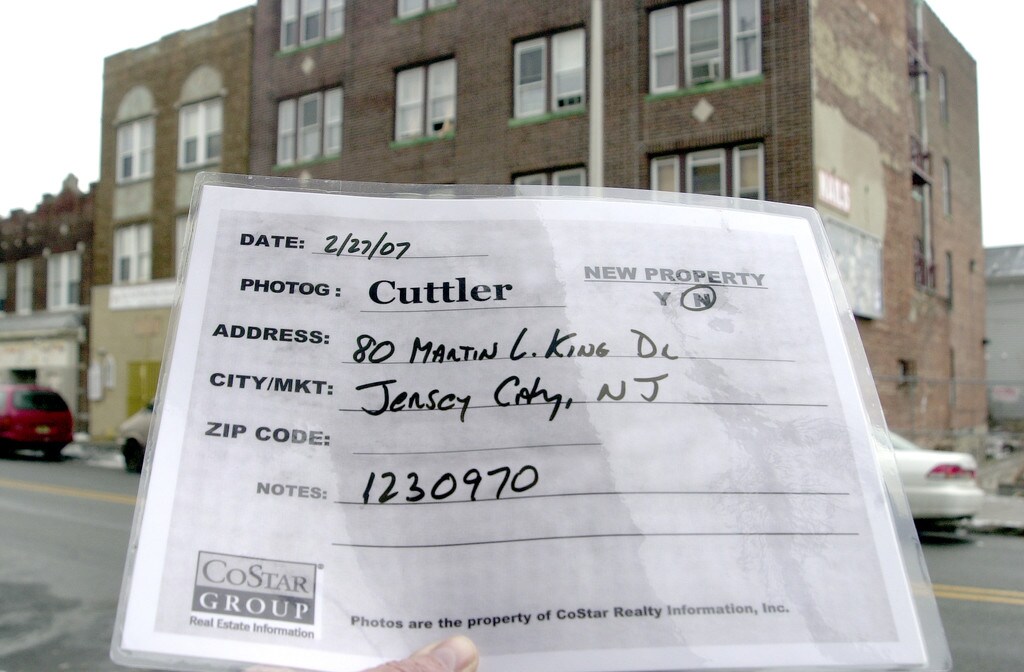 NAILS
DATE: 2/27/07
PHOTOG: Cuttler
NEW PROPERTY
Y N
ADDRESS: 80 MARTIN L. KING DR
CITY/MKT: JERSEY CITY, NJ
ZIP CODE:
NOTES: 1230970
COSTAR®
GROUP
Real Estate Information
Photos are the property of CoStar Realty Information, Inc.